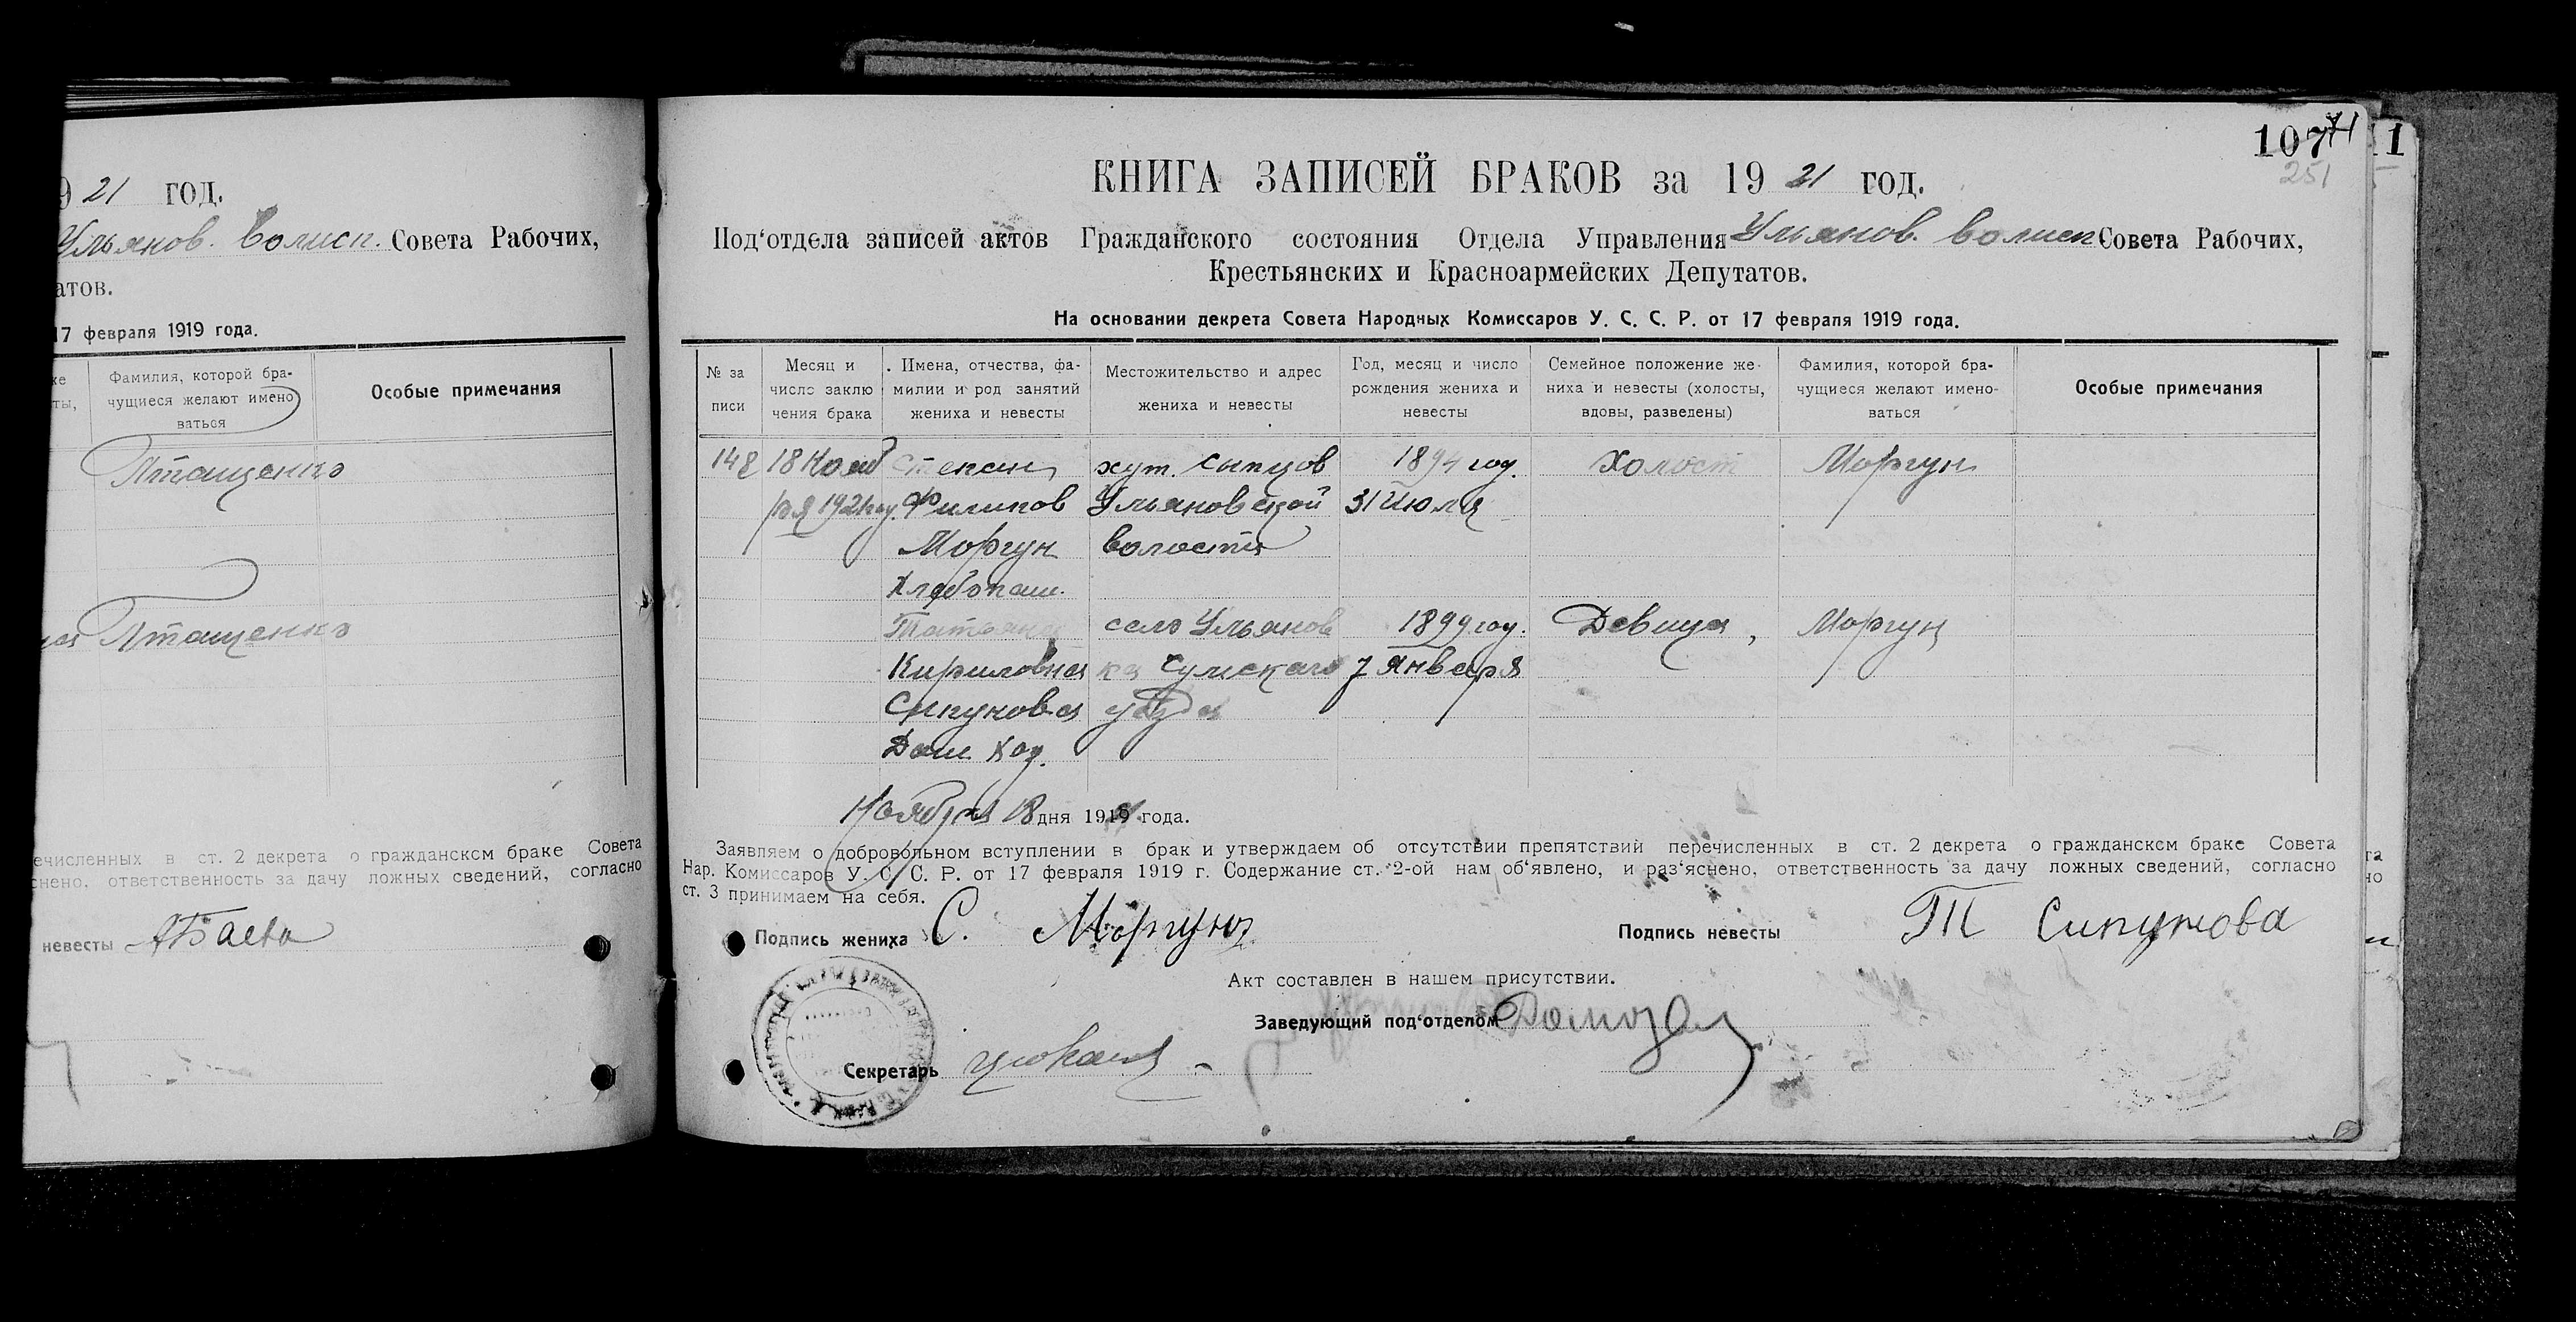 9 21 год.
Ульянов. волисп. Совета Рабочих,
атов.
17 февраля 1919 года.
же
ты,
Фамилия, которой бра-
чущиеся желают имено
ваться
Особые примечания
Пташенко
Пташенко
ечисленных в ст. 2 декрета о гражданском браке Совета
снено, ответственность за дачу ложных сведений, согласно
невесты АБаева
107 71
11
251
КНИГА ЗАПИСЕЙ БРАКОВ за 19 21 год.
Под‘отдела записей актов Гражданского состояния Отдела Управления Ульянов. волисп Совета Рабочих,
Крестьянских и Красноармейских Депутатов.
На основании декрета Совета Народных Комиссаров У. С. С. Р. от 17 февраля 1919 года.
№ за
писи
Месяц и
число заклю
чения брака
Имена, отчества, фа-
милии и род занятий
жениха и невесты
Местожительство и адрес
жениха и невесты
Год, месяц и число
рождения жениха и
невесты
Семейное положение же-
ниха и невесты (холосты,
вдовы, разведены)
Фамилия, которой бра-
чущиеся желают имено-
ваться
Особые примечания
148 18 Нояб Степан хут. 1894 год. Холост Моргун
ря 1921 год. Филипов Ульяновской 31 Июля
Моргун волости
Хлебопаш.
Татьяна село Ульянов 1899 год. Девица, Моргун
Кириловна ка Сумскаго 7 Января
Сипунова уезда
Дом. хоз.
Ноября 18 дня 1921 года.
Заявляем о добровольном вступлении в брак и утверждаем об отсутствии препятствий перечисленных в ст. 2 декрета о гражданском браке Совета
Нар. Комиссаров У. С. С. Р. от 17 февраля 1919 г. Содержание ст. 2-ой нам об‘явлено, и раз‘яснено, ответственность за дачу ложных сведений, согласно
ст. 3 принимаем на себя.
Подпись жениха С. Моргун
Подпись невесты Т Сипунова
Акт составлен в нашем присутствии.
Заведующий под‘отделом
Секретарь